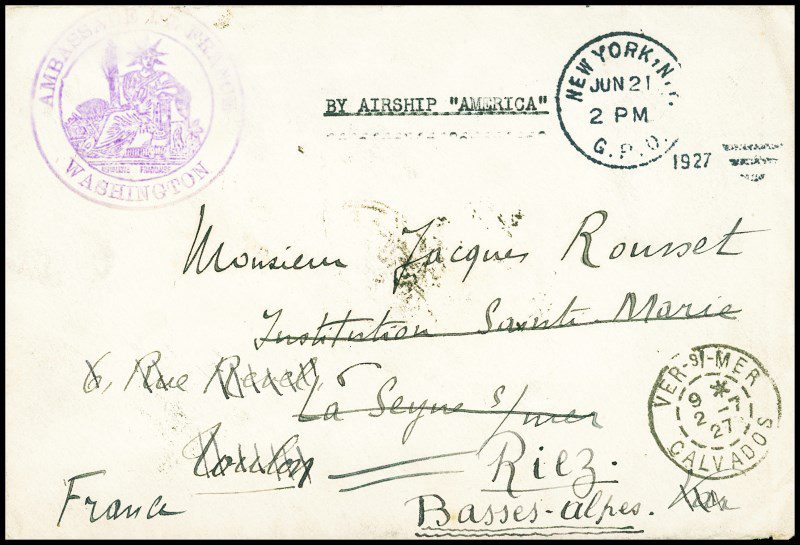 AMBASSADE DE FRANCE
WASHINGTON
BY AIRSHIP "AMERICA"
NEW YORK, N.Y.
JUN 21
2 PM
G.P.O.
1927
Monsieur Jacques Rousset
Institution Sainte Marie
6, Rue
La Seyne s/mer
Toulon
Riez.
France
Basses-alpes.
VER-S-MER
27
CALVADOS